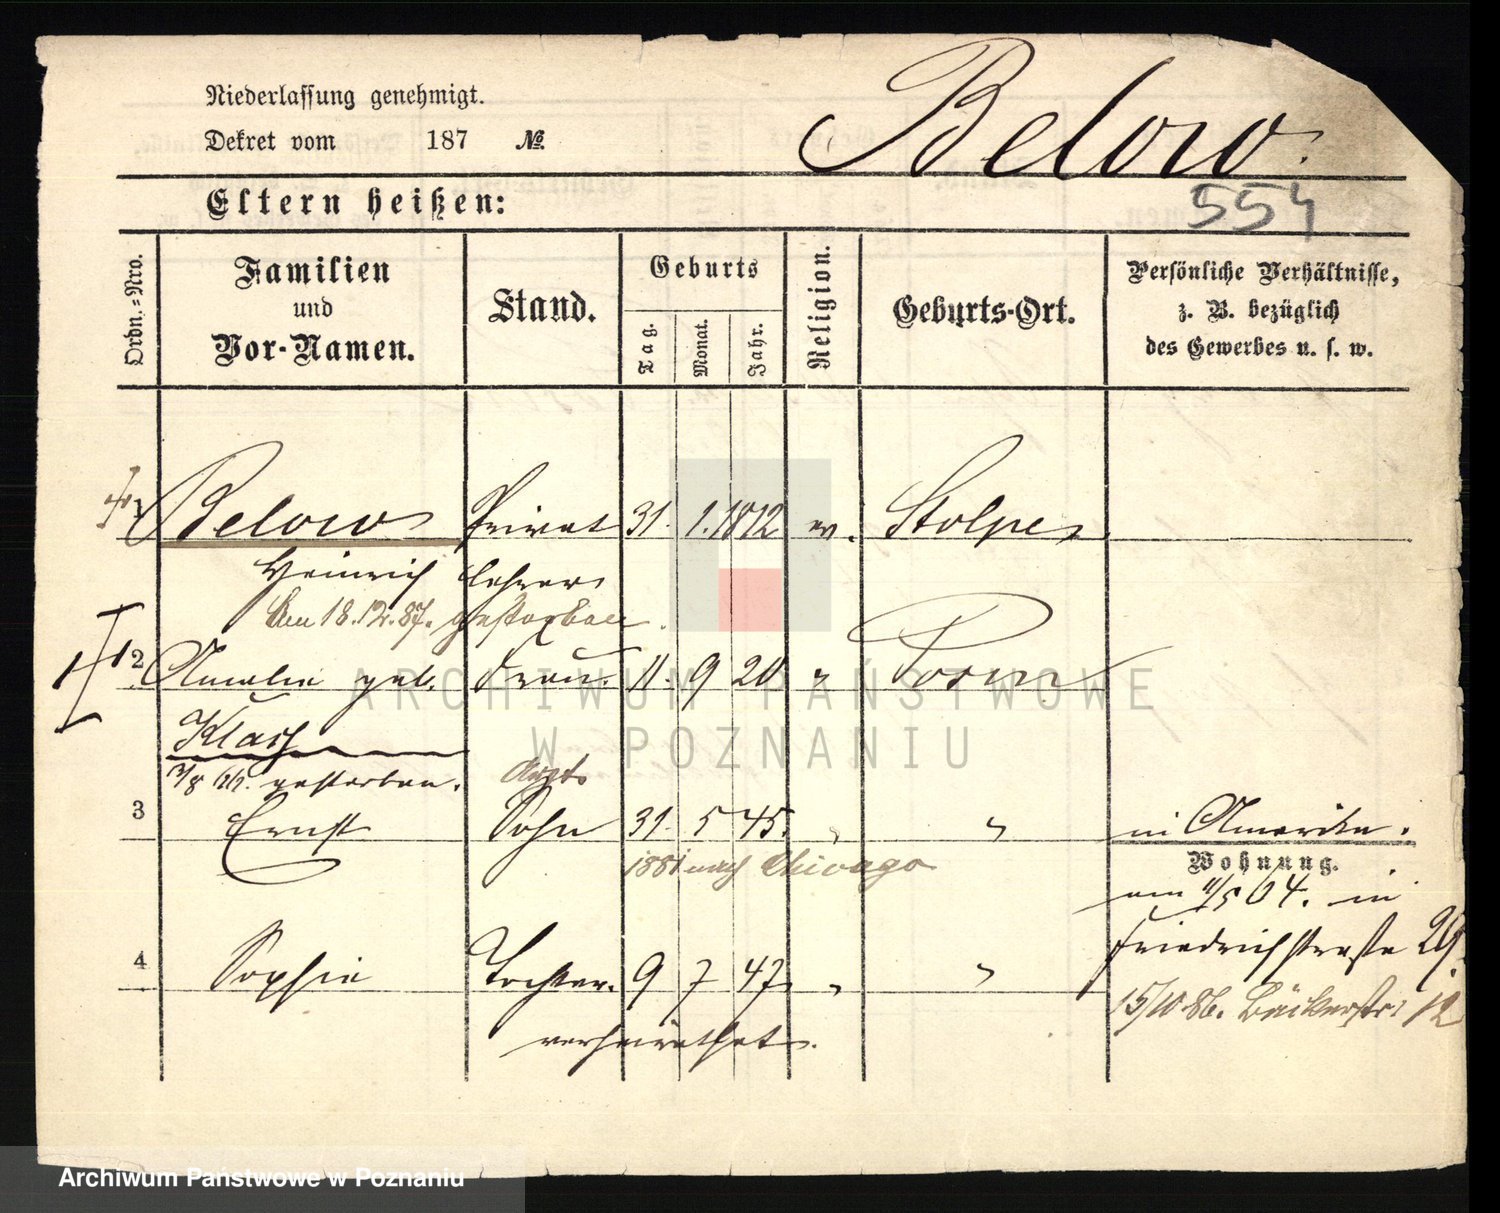 Niederlassung genehmigt.
Dekret vom 187 №
Below.
554
Eltern heißen:
Ordn.-Nro.
Familien und Vor-Namen.
Stand.
Geburts
Tag.
Monat.
Jahr.
Religion.
Geburts-Ort.
Persönliche Verhältnisse,
z. B. bezüglich
des Gewerbes u. s. w.
1 Below Privat 31. 1. 1812 ev. Stolpe
Heinrich lehrer
Am 18.12.87. gestorben.
2 Amalie geb. Frau. 11. 9 20 " Posen
Klasz
gestorben.
Arzt
3 Ernst Sohn 31. 5 45. " " in Amerika.
1881 nach Chicago
Wohnung.
am 11/5 64. in
Friedrichstraße 29.
4 Sophie Tochter. 9 7 47. " "
15/10.86. Bäckerstr. 12
verheirathet.
ARCHIWUM PAŃSTWOWE
W POZNANIU
Archiwum Państwowe w Poznaniu